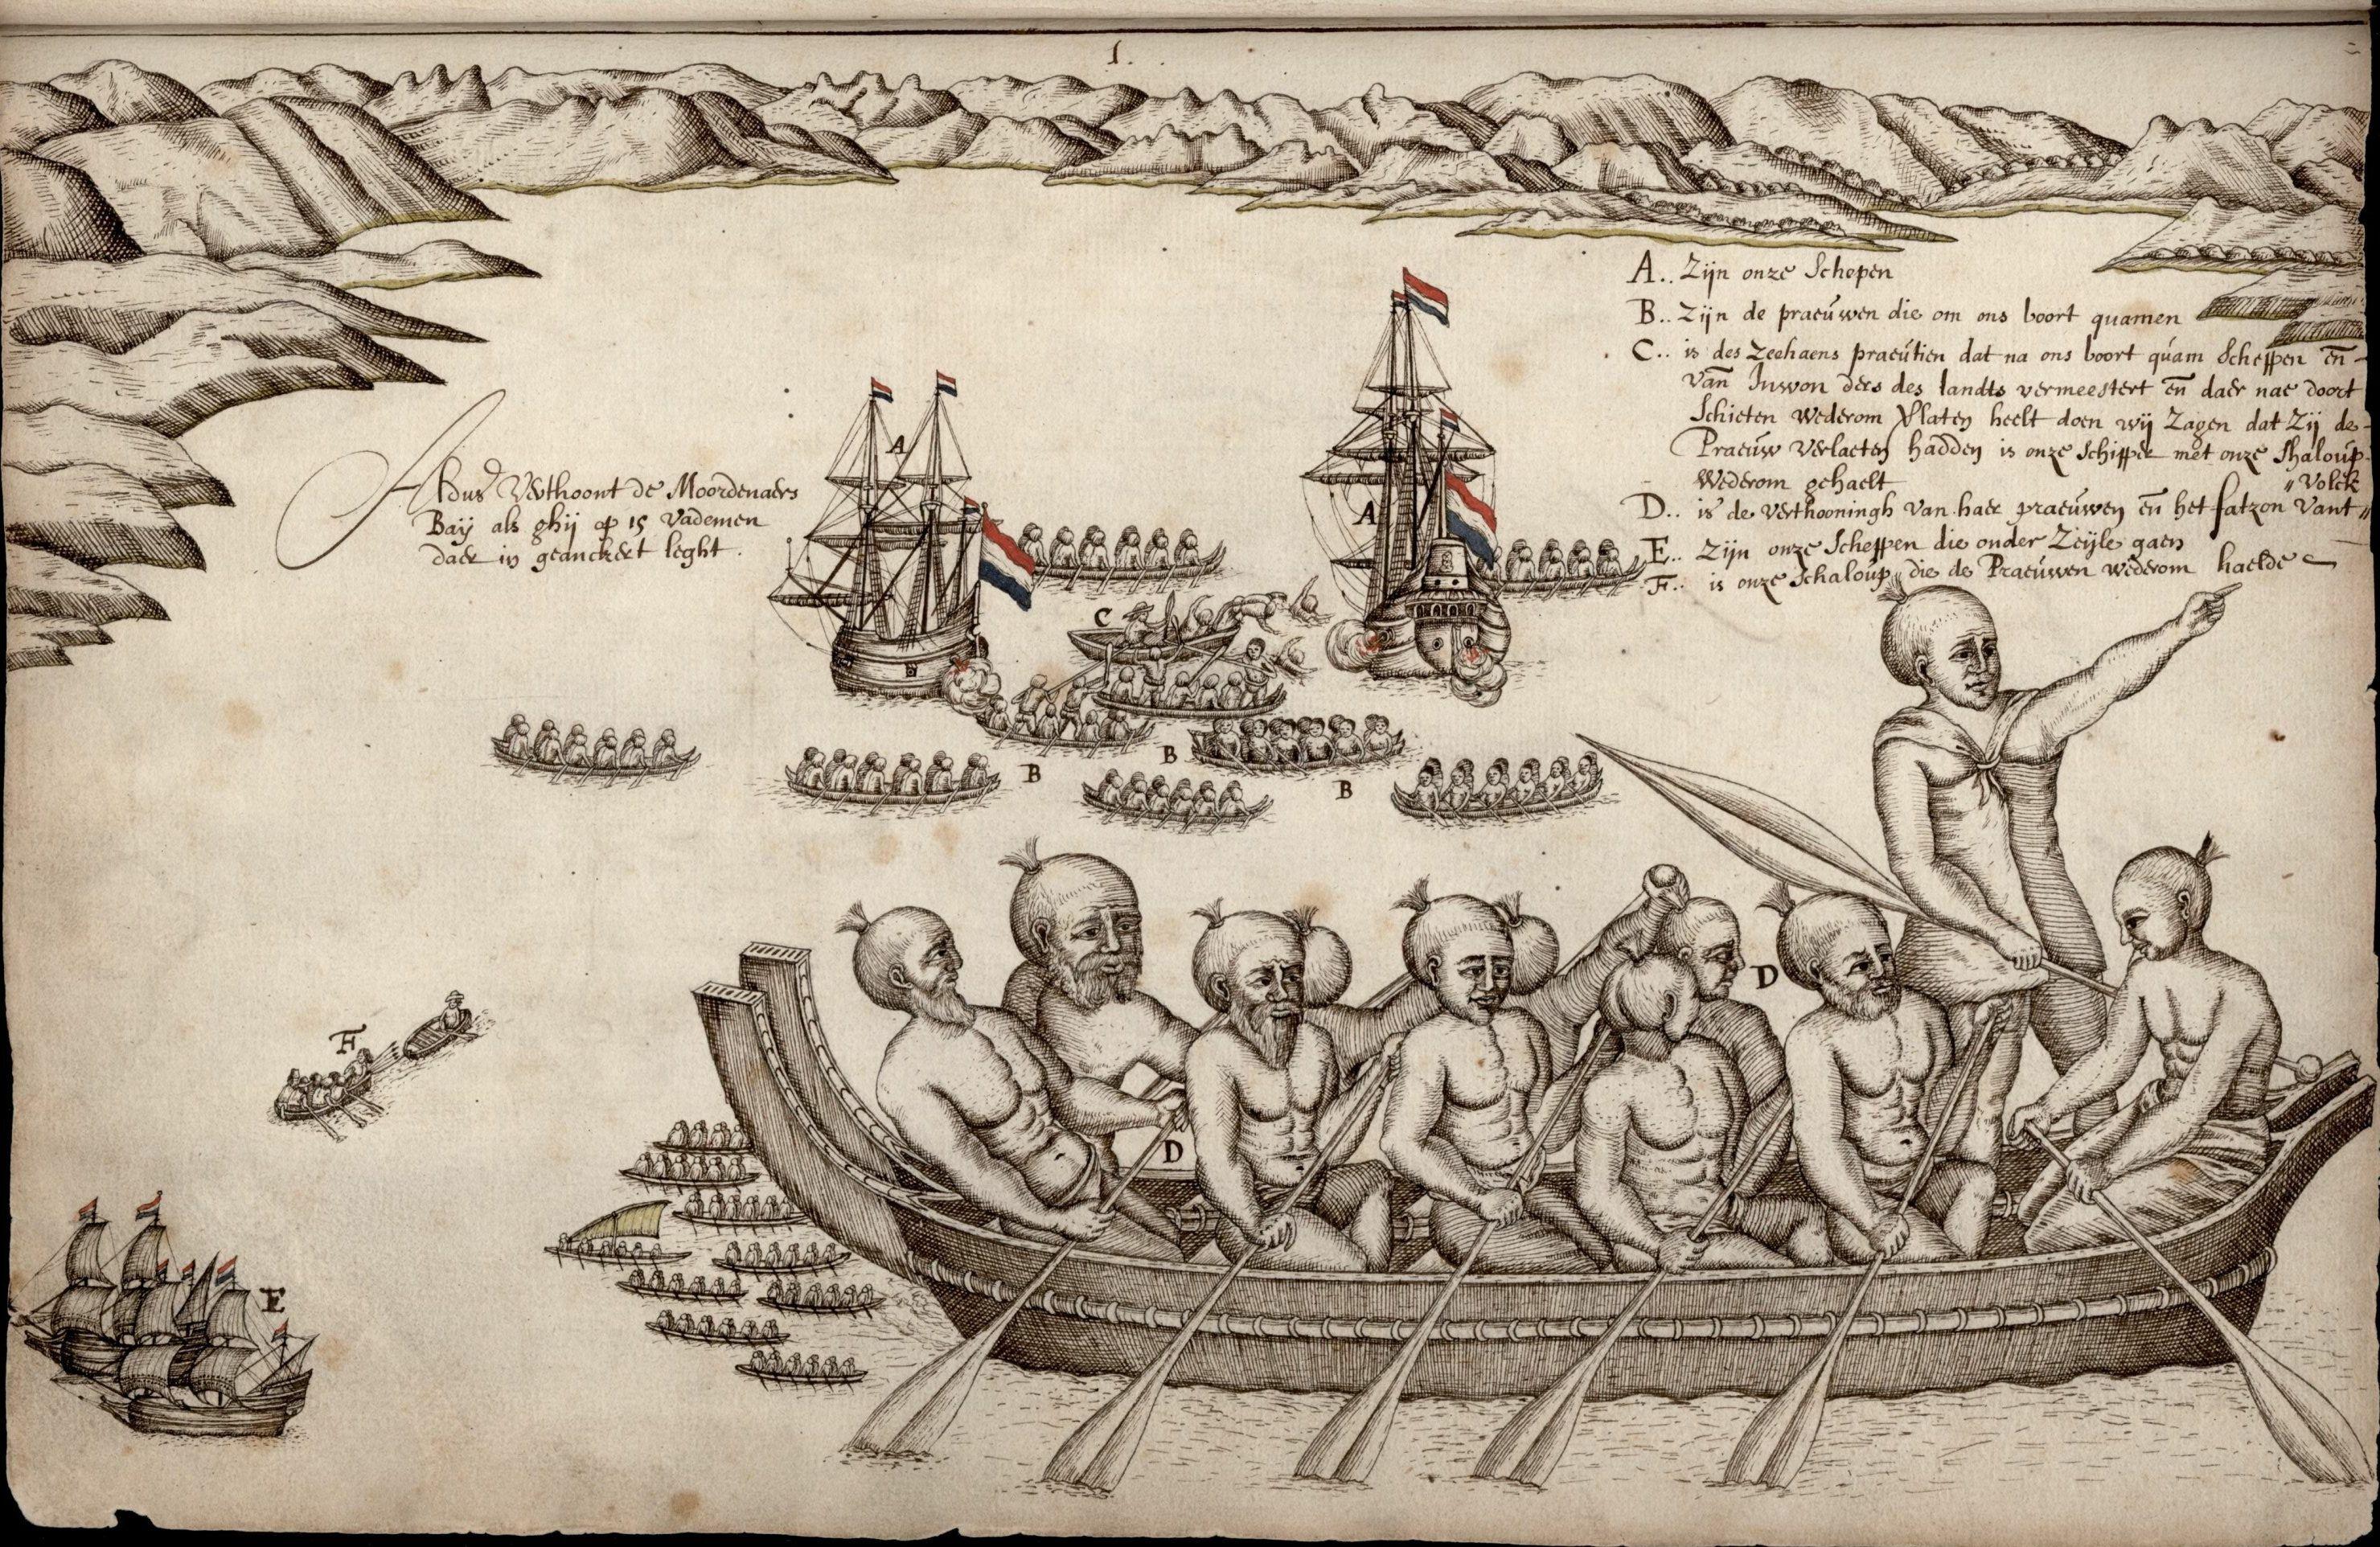 1.
A.. Zijn onze Schepen
B.. Zijn de praeúwen die om ons boort quamen
C.. is des Zeehaens praeútien dat na ons boort qúam Scheppen en̄
van̄ Inwon ders des landts vermeestert en̄ daer nae doort
Schieten wederom Vlaten heelt doen wij Zagen dat Zij de
Praeúw verlaeten hadden is onze Schipper met onze Shaloúp
wederom gehaelt
D.. is de verthooningh van haer praeúwen en̄ het fatzon vant
" Volck
E.. Zijn onze Scheppen die onder Zeijle gaen
F.. is onze Schaloúp die de Praeúwen wederom haelde
Aldus Verthoont de Moordenaers
Baij als ghij op 15 Vademen
daer in geanckert leght.
A
A
C
B
B
B
D
D
F
E